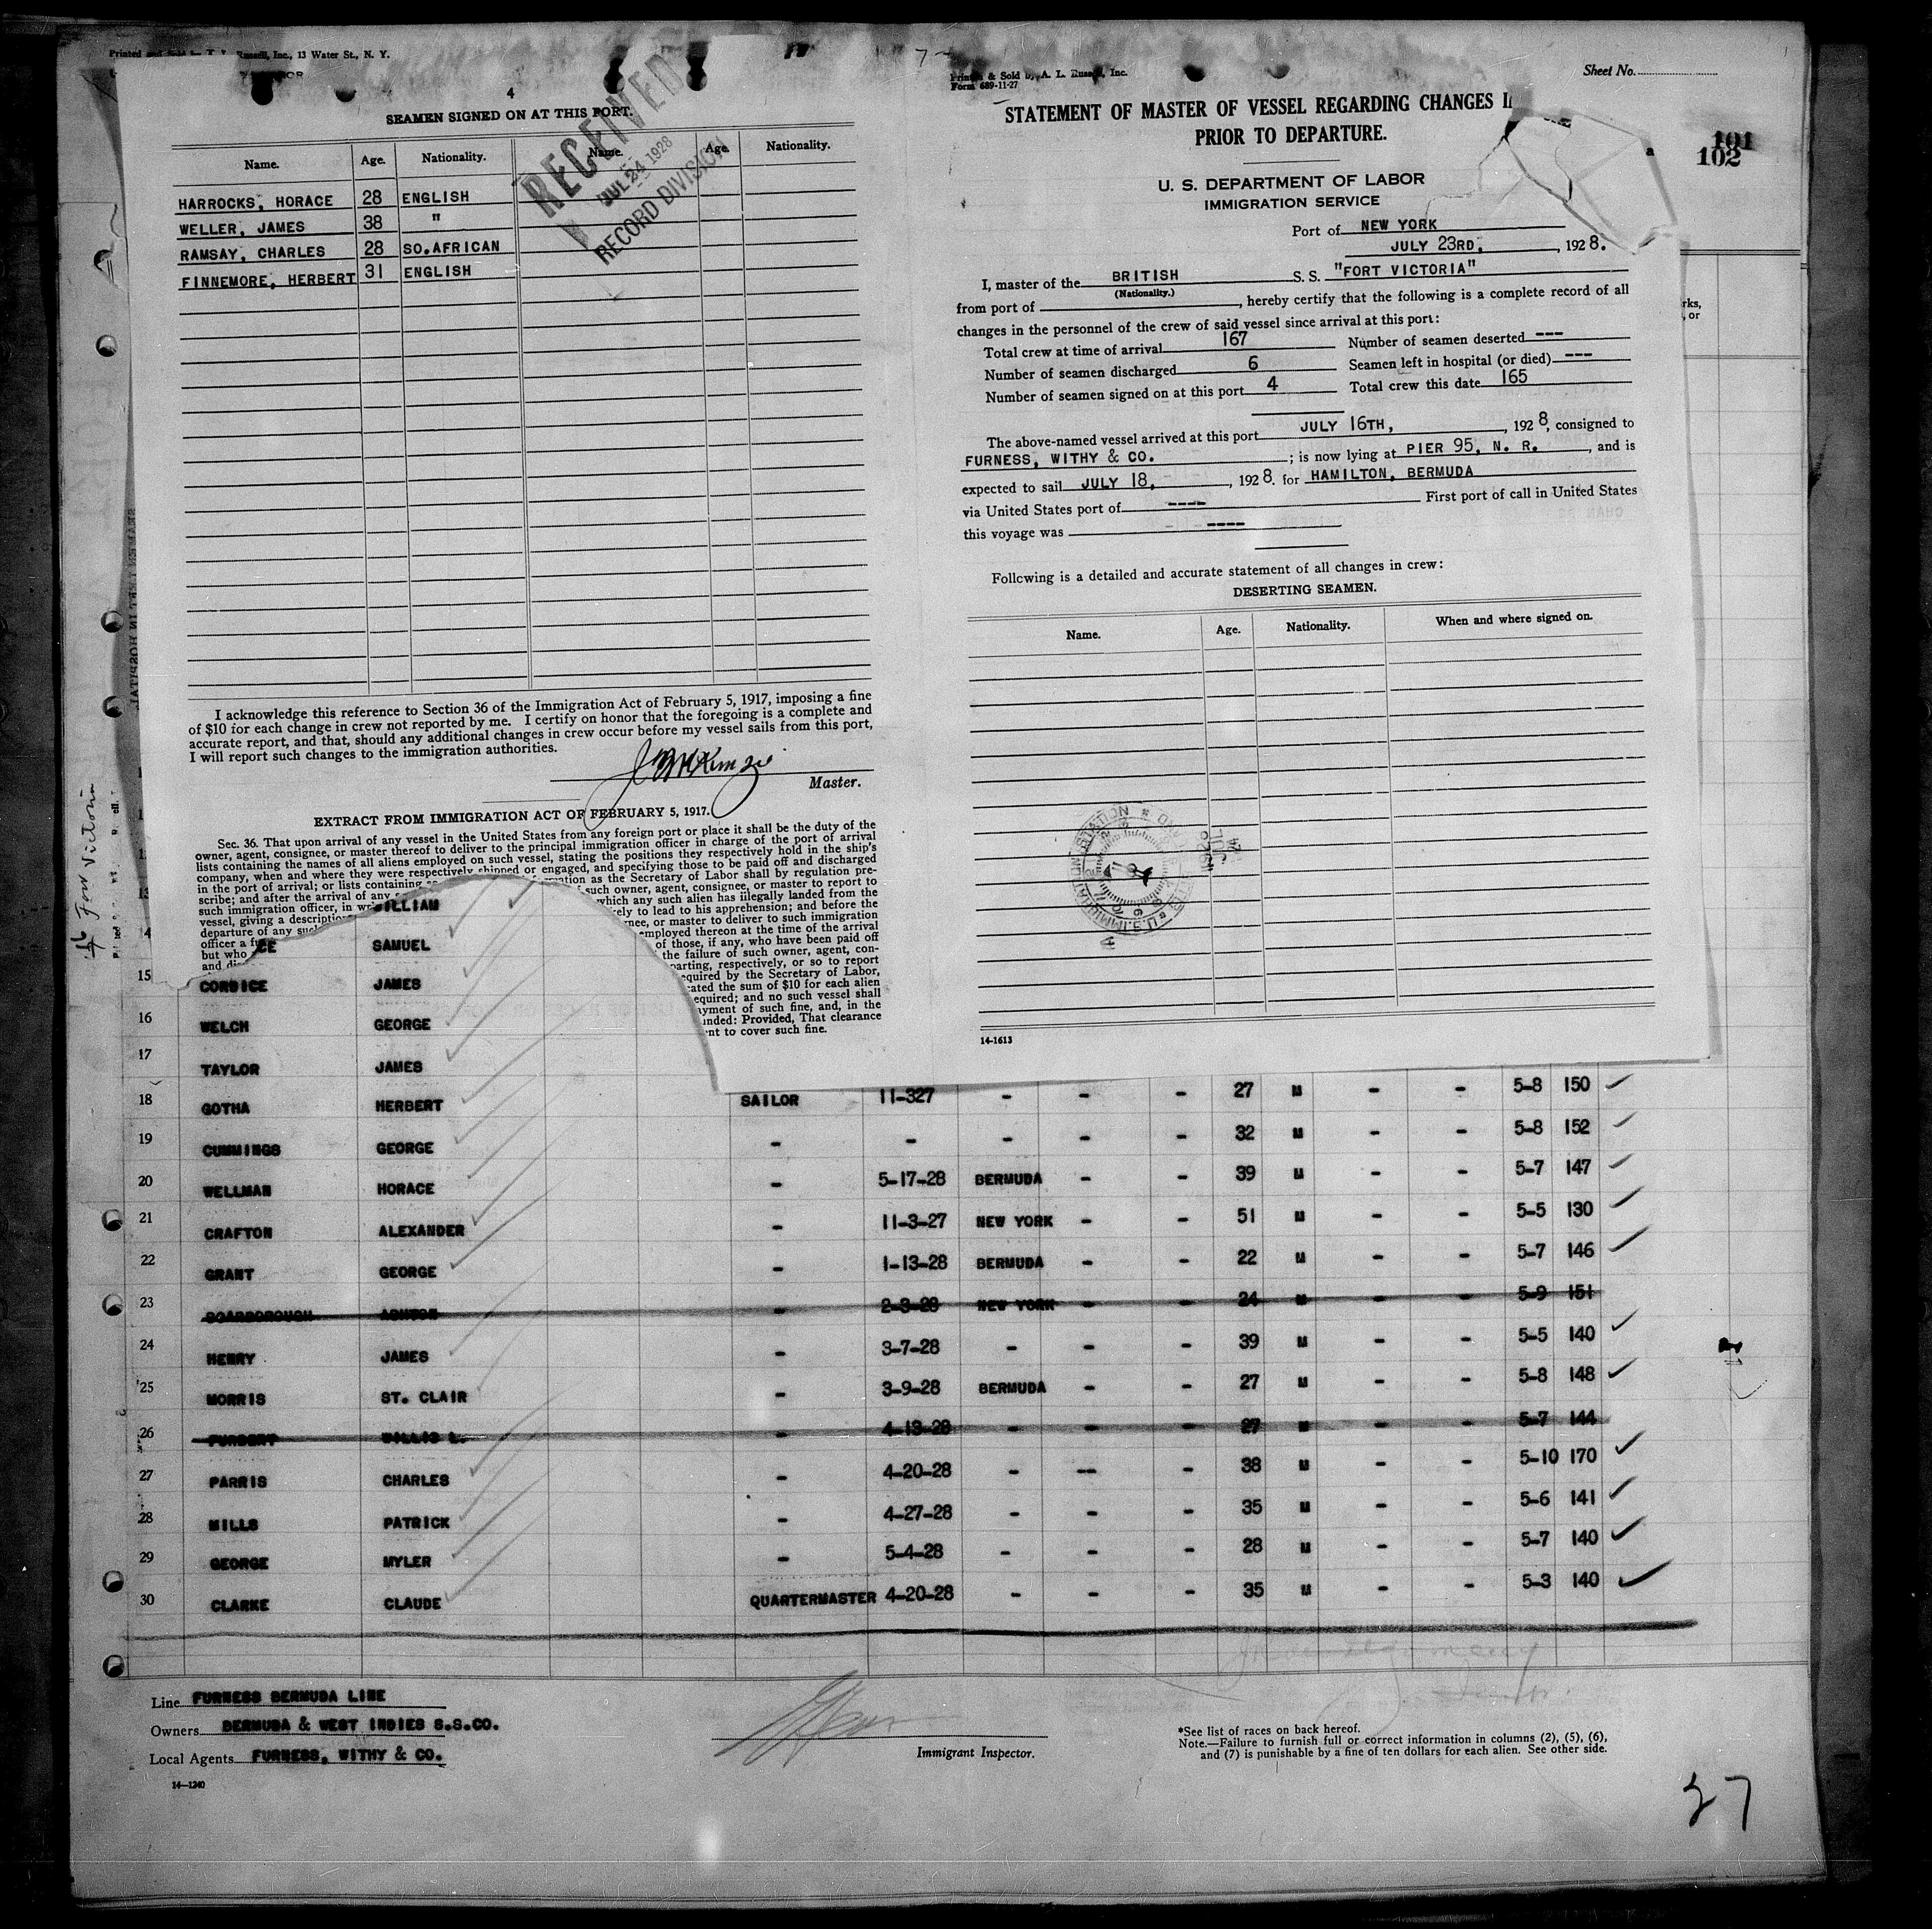 Printed and Sold by Russell, Inc., 13 Water St., N. Y.
4
SEAMEN SIGNED ON AT THIS PORT.
Name. Age. Nationality. Name. Age. Nationality.
HARROCKS, HORACE 28 ENGLISH
WELLER, JAMES 38 "
RAMSAY, CHARLES 28 SO.AFRICAN
FINNEMORE, HERBERT 31 ENGLISH
RECEIVED
JUL 24 1928
RECORD DIVISION
I acknowledge this reference to Section 36 of the Immigration Act of February 5, 1917, imposing a fine
of $10 for each change in crew not reported by me. I certify on honor that the foregoing is a complete and
accurate report, and that, should any additional changes in crew occur before my vessel sails from this port,
I will report such changes to the immigration authorities.
Master.
EXTRACT FROM IMMIGRATION ACT OF FEBRUARY 5, 1917.
Sec. 36. That upon arrival of any vessel in the United States from any foreign port or place it shall be the duty of the
owner, agent, consignee, or master thereof to deliver to the principal immigration officer in charge of the port of arrival
lists containing the names of all aliens employed on such vessel, stating the positions they respectively hold in the ship's
company, when and where they were respectively shipped or engaged, and specifying those to be paid off and discharged
in the port of arrival; or lists containing as the Secretary of Labor shall by regulation pre-
scribe; and after the arrival of any such owner, agent, consignee, or master to report to
such immigration officer, in which any such alien has illegally landed from the
vessel, giving a description likely to lead to his apprehension; and before the
departure of any such or master to deliver to such immigration
officer a employed thereon at the time of the arrival
but who of those, if any, who have been paid off
and the failure of such owner, agent, con-
parting, respectively, or so to report
required by the Secretary of Labor,
the sum of $10 for each alien
required; and no such vessel shall
payment of such fine, and, in the
Provided, That clearance
to cover such fine.
Printed & Sold by A. L. Russell, Inc.
Form 689-11-27
Sheet No.
STATEMENT OF MASTER OF VESSEL REGARDING CHANGES
PRIOR TO DEPARTURE.
U. S. DEPARTMENT OF LABOR
IMMIGRATION SERVICE
Port of NEW YORK
JULY 23RD, 1928.
I, master of the BRITISH S. S. "FORT VICTORIA"
(Nationality.)
from port of , hereby certify that the following is a complete record of all
changes in the personnel of the crew of said vessel since arrival at this port:
Total crew at time of arrival 167 Number of seamen deserted ---
Number of seamen discharged 6 Seamen left in hospital (or died) ---
Number of seamen signed on at this port 4 Total crew this date 165
The above-named vessel arrived at this port JULY 16TH, 1928, consigned to
FURNESS, WITHY & CO. ; is now lying at PIER 95, N. R. , and is
expected to sail JULY 18, 1928. for HAMILTON, BERMUDA
via United States port of ---- First port of call in United States
this voyage was ----
Following is a detailed and accurate statement of all changes in crew:
DESERTING SEAMEN.
Name. Age. Nationality. When and where signed on.
14-1613
101
102
Fort Victoria
WILLIAM
14 SAMUEL
15 CORBICE JAMES
16 WELCH GEORGE
17 TAYLOR JAMES
18 GOTHA HERBERT SAILOR 11-327 - - - 27 M - - 5-8 150
19 CUMMINGS GEORGE - - - - - 32 M - - 5-8 152
20 WELLMAN HORACE - 5-17-28 BERMUDA - - 39 M - - 5-7 147
21 CRAFTON ALEXANDER - 11-3-27 NEW YORK - - 51 M - - 5-5 130
22 GRANT GEORGE - 1-13-28 BERMUDA - - 22 M - - 5-7 146
23 SCARBOROUGH ASHTON - 2-3-28 NEW YORK - - 24 M - - 5-9 151
24 HENRY JAMES - 3-7-28 - - - 39 M - - 5-5 140
25 MORRIS ST. CLAIR - 3-9-28 BERMUDA - - 27 M - - 5-8 148
26 FURBERT WILLIS L. - 4-13-28 - - - 27 M - - 5-7 144
27 PARRIS CHARLES - 4-20-28 - -- - 38 M - - 5-10 170
28 MILLS PATRICK - 4-27-28 - - - 35 M - - 5-6 141
29 GEORGE MYLER - 5-4-28 - - - 28 M - - 5-7 140
30 CLARKE CLAUDE QUARTERMASTER 4-20-28 - - - 35 M - - 5-3 140
Line FURNESS BERMUDA LINE
Owners BERMUDA & WEST INDIES S.S.CO.
Local Agents FURNESS, WITHY & CO.
14-1240
Immigrant Inspector.
*See list of races on back hereof.
Note.—Failure to furnish full or correct information in columns (2), (5), (6),
and (7) is punishable by a fine of ten dollars for each alien. See other side.
27